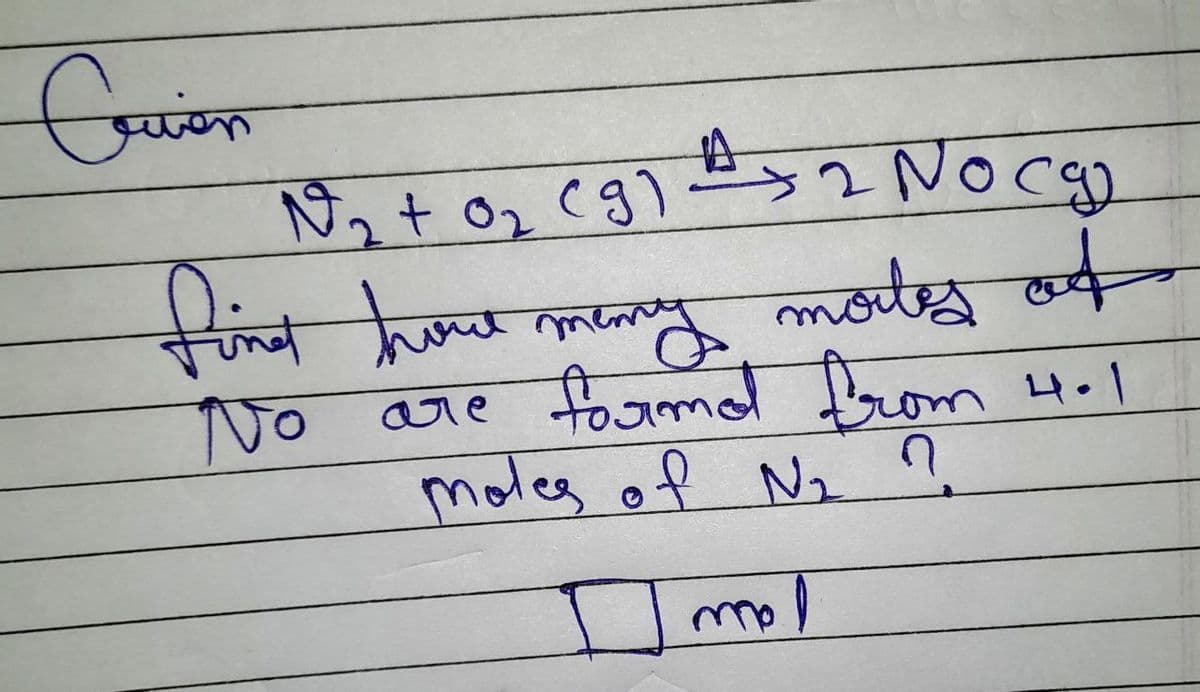 Given
N₂ + O₂ (g) Δ→ 2 NO (g)
find how many moles of
NO are formed from 4.1
moles of N₂ ?
mol